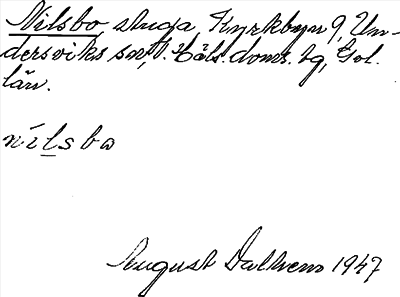 Nilsbo, stuga, Kyrkbyn 9, Un-
dersviks sn, N. Häls. doms. tg, Gvl.
län.
nilsbo
August Dalhem 1947